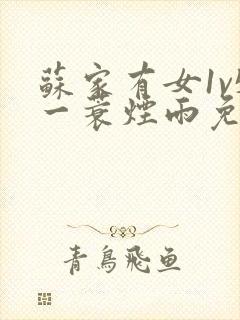 蘇家有女1v
一蓑煙雨免
青鳥飛鱼